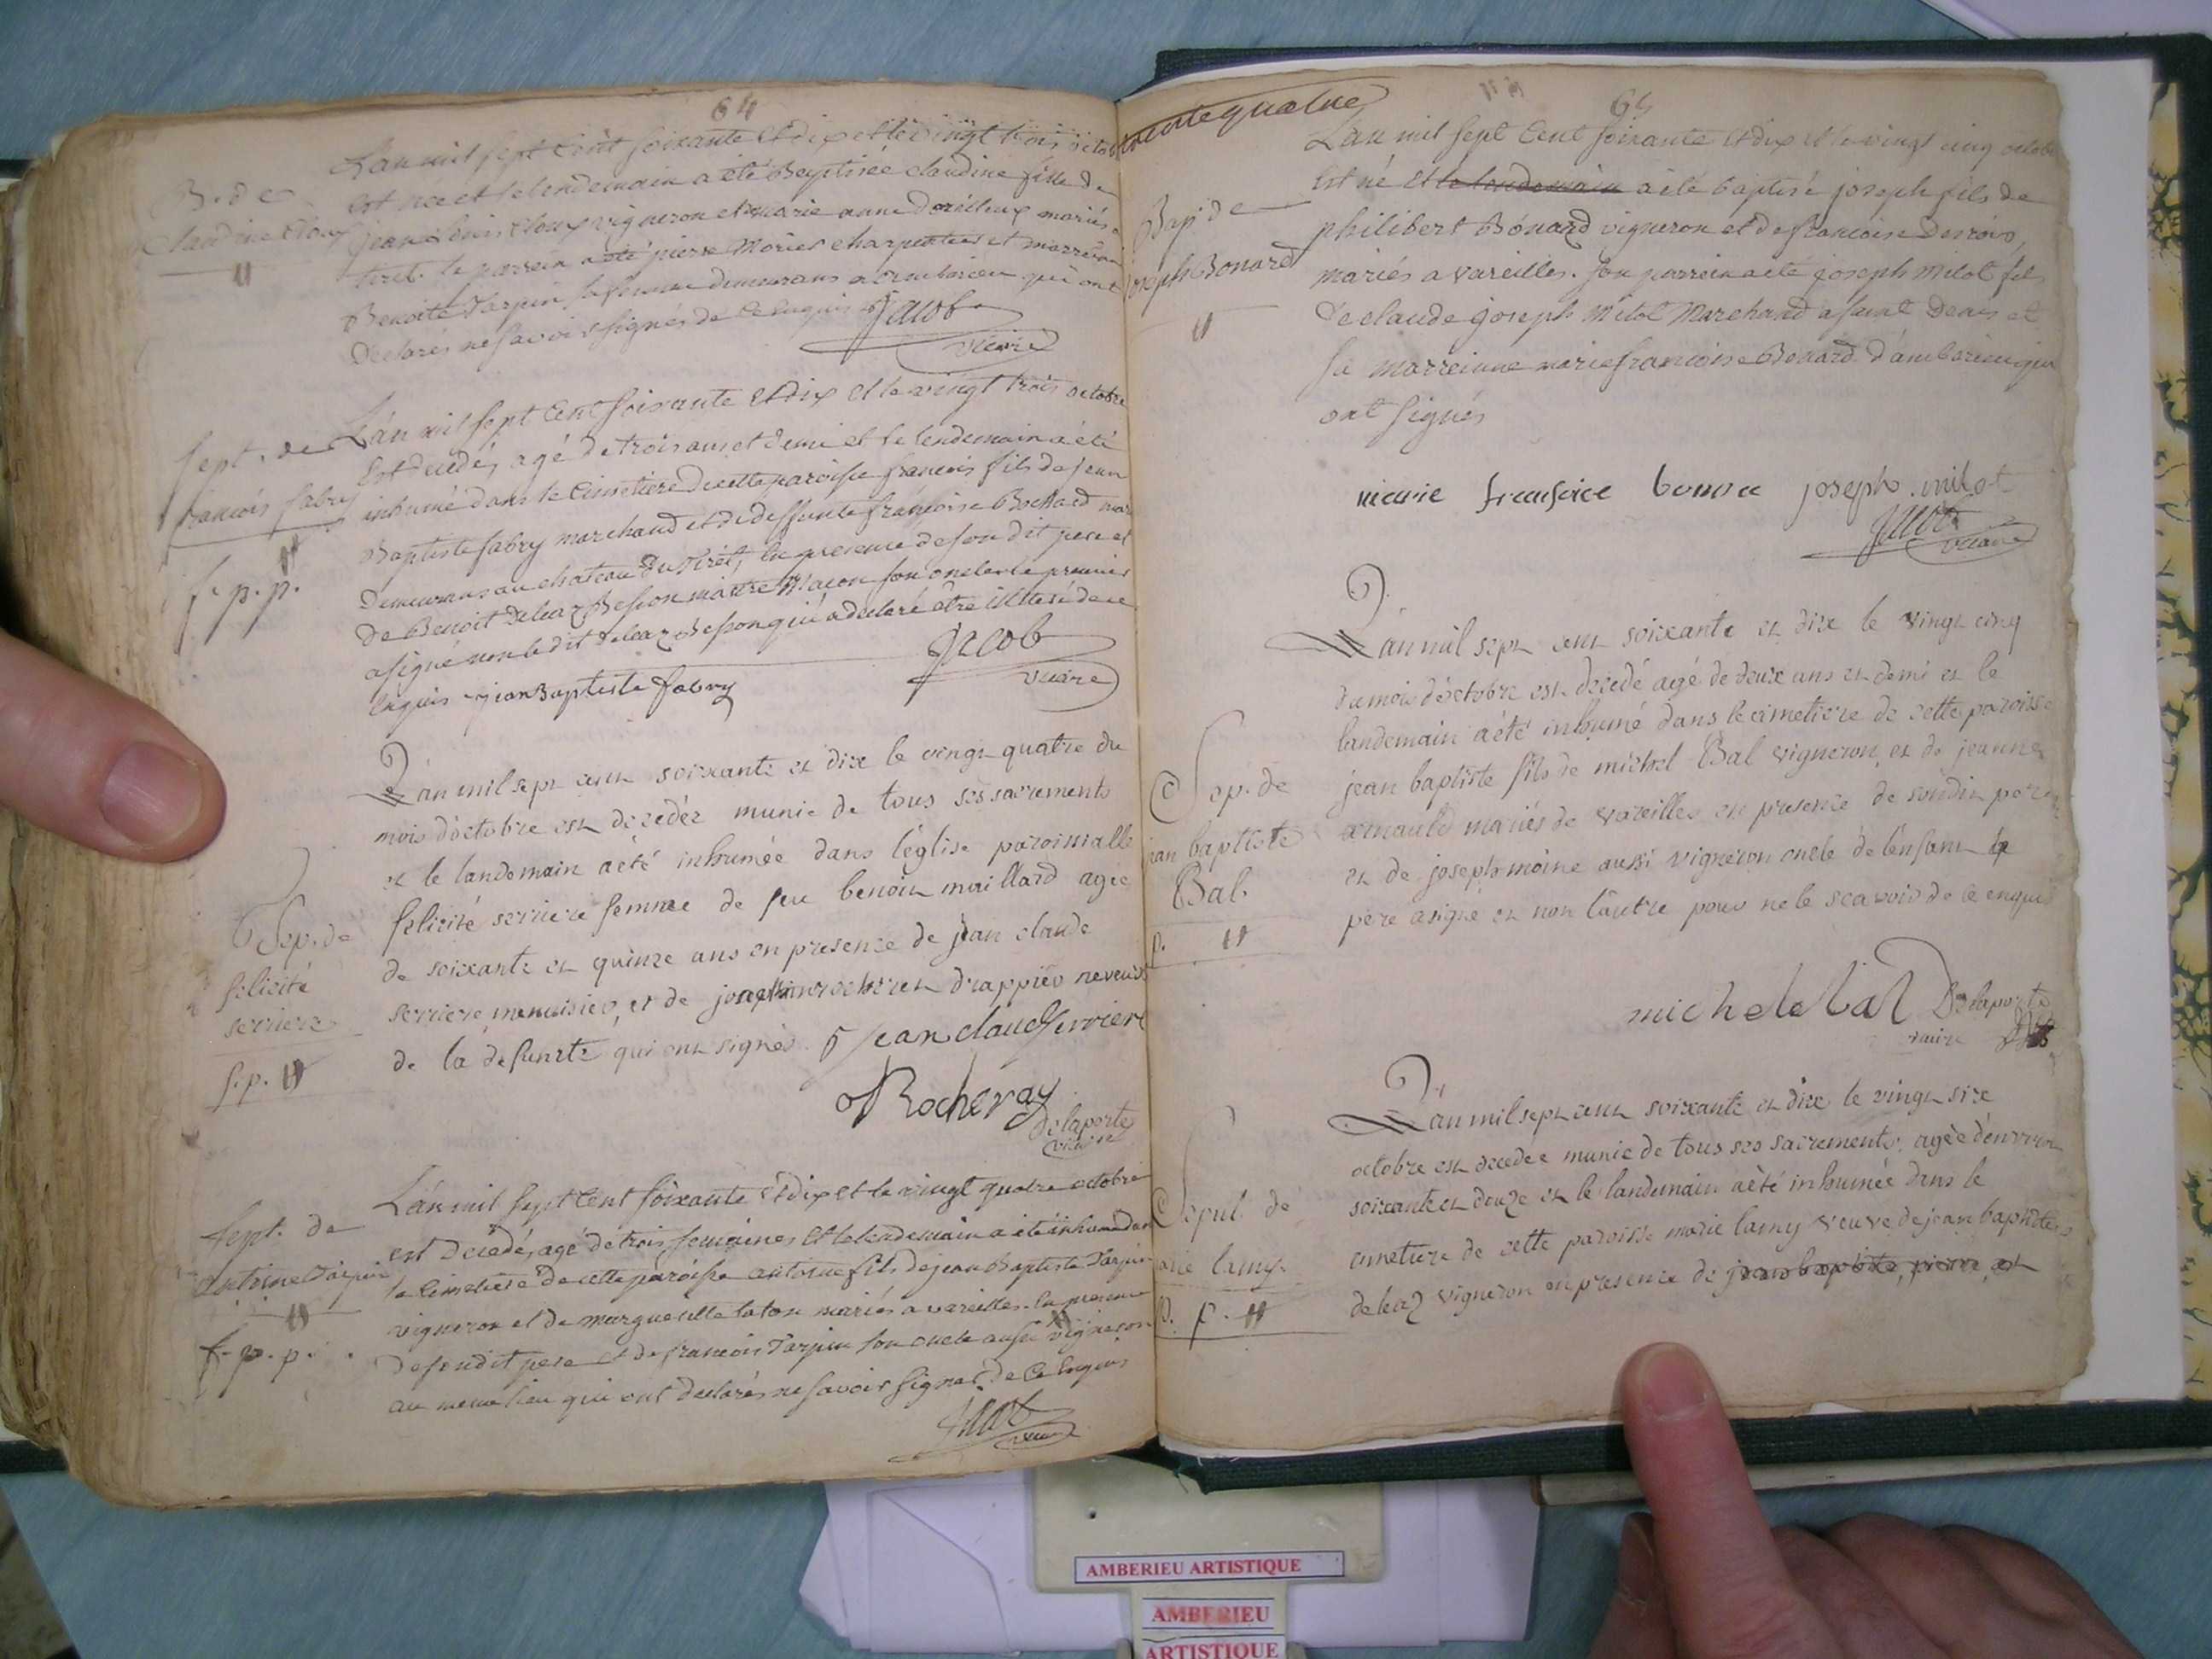 64
L'an mil sept Cent soixante et dix et le vingt trois octobre
B. de
est née et le lendemain a été Baptisée claudine fille de
Claudine
vigneron et marie anne mariés a
tiret. le parrein a été pierre charpentier et marreine
Benoite Tarpin sa femme demeurans a amberieu qui ont
declarés ne savoir signés de ce enquis
Jacob
vicaire
L'an mil sept Cent soixante et dix et le vingt trois octobre
sept. de
est decedés agé de trois ans et demi et le lendemain a été
francois fabry
inhumé dans le Cimetiere de cette paroisse francois fils de jean
Baptiste fabry marchand et de deffunte françoise Bochard
f. p. p.
demeurans au chateau du Tiret, en presence de son dit pere et
de Benoit delear Besson maitre Maçon son oncle le premier
a signé non le dit delear Besson qui a declaré être illiteré de ce
enquis jean Baptiste fabry
Jacob
vicaire
L'an mil sept cent soixante et dix le vingt quatre du
mois d'octobre est decedée munie de tous ses sacrements
et le landemain a été inhumée dans l'église paroissialle
Sep. de
felicité serriere femme de feu benoit maillard agée
felicité
de soixante et quinze ans en presence de jean claude
serriere
serriere menuisier, et de joseph rocheret drappier neveux
f. p.
de la defunte qui ont signés. jean claud serriere
Rocheray
Delaporte
vicaire
L'an mil sept Cent soixante et dix et le vingt quatre octobre
sept. de
est decedés agé de trois semaines et le lendemain a été inhumé dans
antoine Tarpin
le Cimetiere de cette paroisse antoine fils de jean Baptiste Tarpin
vigneron et de margueritte laton mariés a vareilles. en presence
f. p. p.
de son dit pere et de francois Tarpin son oncle aussi vigneron
au meme lieu qui ont declarés ne savoir signer de ce enquis
Jacob
vicaire
trente quatre
65
L'an mil sept Cent soixante et dix et le vingt cinq octobre
est né et le lendemain a été baptisé joseph fils de
Bap. de
philibert Bonard vigneron et de francoise Desrois,
joseph Bonard
mariés a vareilles. son parrein a été joseph milot fils
de claude joseph milot Marchand a saint denis et
sa marreinne marie francoise Bonard d'amberieu qui
ont signés
marie francoice bonna joseph. milot
Jacob
vicaire
L'an mil sept cent soixante et dix le vingt cinq
du mois d'octobre est decedé agé de deux ans et demi et le
landemain a été inhumé dans le cimetiere de cette paroisse
Sep. de
jean baptiste fils de michel Bal vigneron, et de jeanne
jean baptiste
arnauld mariés de vareilles en presence de sondit pere
Bal.
et de joseph moine aussi vigneron oncle de l'enfant le
p.
père a signé et non l'autre pour ne le scavoir de ce enquis
michele bal Delaporte
vicaire
L'an mil sept cent soixante et dix le vingt six
octobre est decedée munie de tous ses sacrements, agée d'environ
soixante et douze et le landemain a été inhumée dans le
Sepul. de
cimetiere de cette paroisse marie lamy veuve de jean baptiste
marie lamy.
deleaz vigneron en presence de jean baptiste, pierre, et
p. p.
AMBERIEU ARTISTIQUE
AMBERIEU
ARTISTIQUE